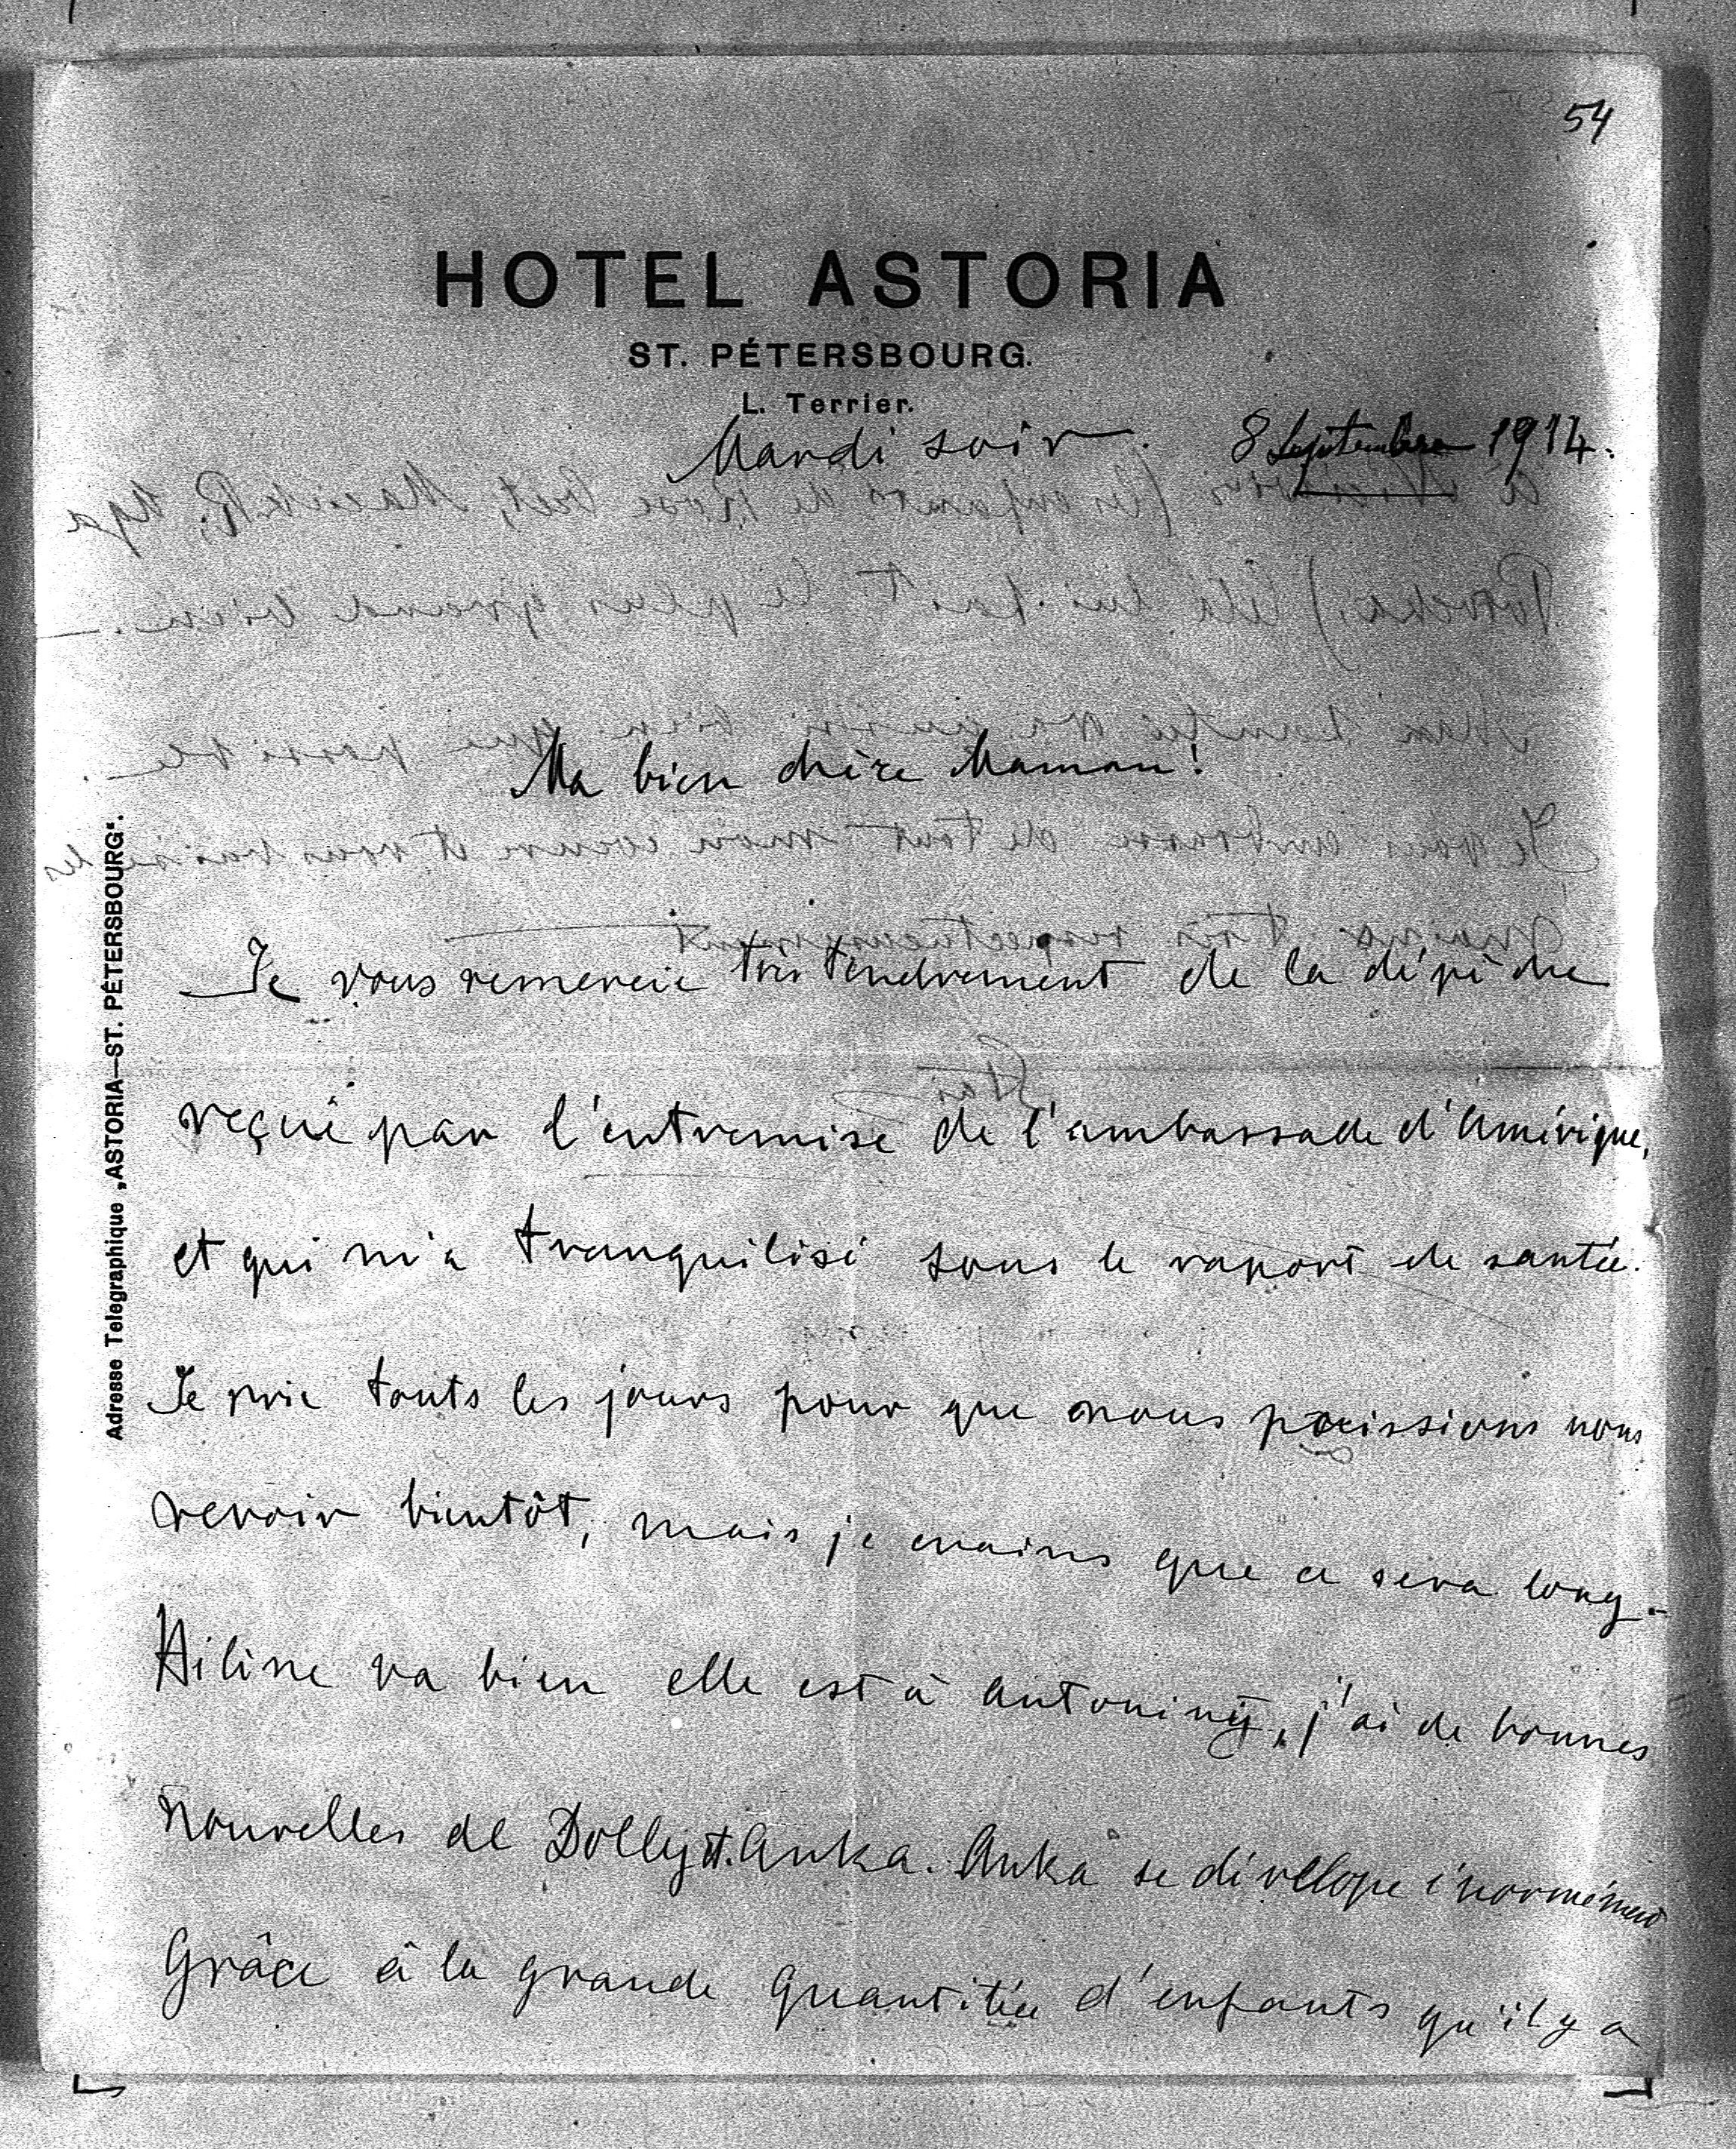 54
HOTEL ASTORIA
ST. PÉTERSBOURG.
L. Terrier.
Mardi soir. 8 Septembre 1914.
Ma bien chère Maman!
Je vous remercie très tendrement de la dépêche
reçue par l'entremise de l'ambassade d'Amérique,
et qui m'a tranquilisé sous le raport de santée.
Je prie touts les jours pour que nous puissions nous
revoir bientôt, mais je crains que ce sera long.
Hiline va bien elle est à Antoniny, j'ai de bonnes
nouvelles de Dolly et Anka. Anka se dévellope énormément
Grâce à la grande quantitée d'enfants qu'il y a
Adresse Telegraphique „ASTORIA—ST. PÉTERSBOURG“.